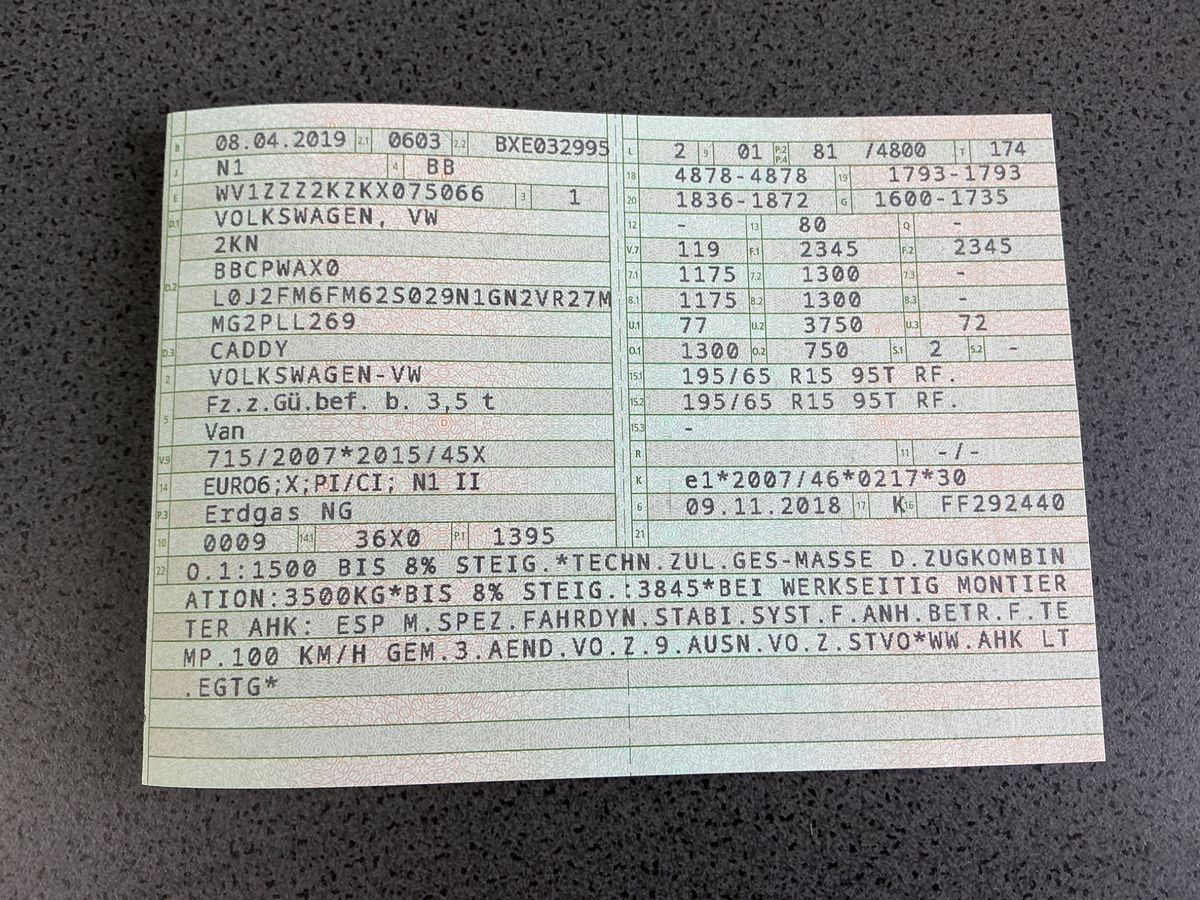 B 08.04.2019 2.1 0603 2.2 BXE032995
J N1 4 BB
E WV1ZZZ2KZKX075066 3 1
D.1 VOLKSWAGEN, VW
2KN
D.2 BBCPWAX0
L0J2FM6FM62S029N1GN2VR27M
MG2PLL269
D.3 CADDY
2 VOLKSWAGEN-VW
5 Fz.z.Gü.bef. b. 3,5 t
Van
V.9 715/2007*2015/45X
14 EURO6;X;PI/CI; N1 II
P.3 Erdgas NG
10 0009 14.1 36X0 P.1 1395
L 2 9 01 P.2 P.4 81 /4800 T 174
18 4878-4878 19 1793-1793
20 1836-1872 G 1600-1735
12 - 13 80 Q -
V.7 119 F.1 2345 F.2 2345
7.1 1175 7.2 1300 7.3 -
8.1 1175 8.2 1300 8.3 -
U.1 77 U.2 3750 U.3 72
O.1 1300 O.2 750 S.1 2 S.2 -
15.1 195/65 R15 95T RF.
15.2 195/65 R15 95T RF.
15.3 -
R 11 -/-
K e1*2007/46*0217*30
6 09.11.2018 17 K 16 FF292440
21
22 O.1:1500 BIS 8% STEIG.*TECHN.ZUL.GES-MASSE D.ZUGKOMBIN
ATION:3500KG*BIS 8% STEIG.:3845*BEI WERKSEITIG MONTIER
TER AHK: ESP M.SPEZ.FAHRDYN.STABI.SYST.F.ANH.BETR.F.TE
MP.100 KM/H GEM.3.AEND.VO.Z.9.AUSN.VO.Z.STVO*WW.AHK LT
.EGTG*